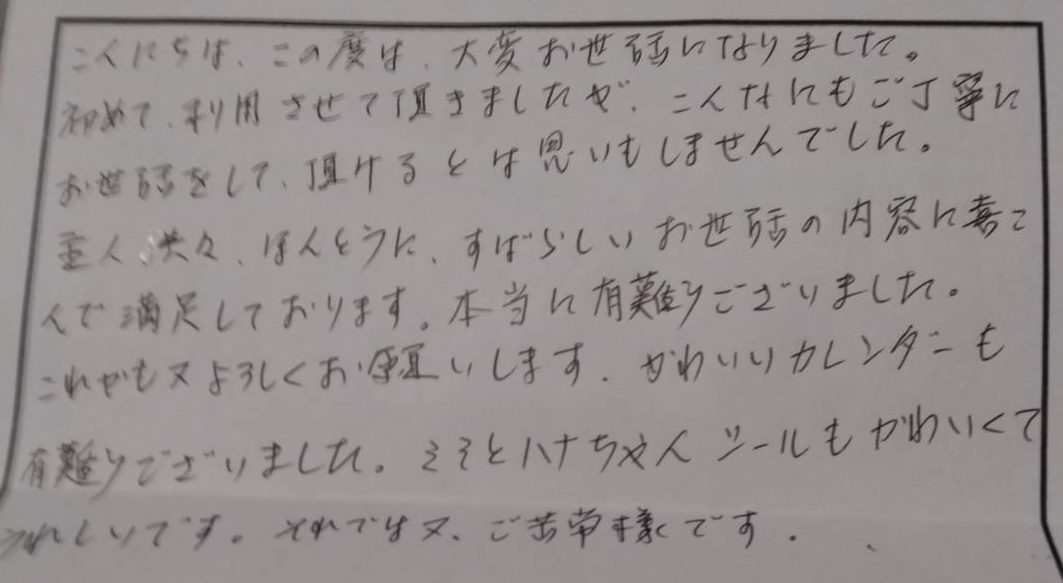 こんにちは、この度は、大変お世話になりました。
初めて、利用させて頂きましたが、こんなにもご丁寧に
お世話をして、頂けるとは思いもしませんでした。
主人、共々、ほんとうに、すばらしいお世話の内容に喜こ
んで満足しております。本当に有難うございました。
これからも又よろしくお願いします。かわいいカレンダーも
有難うございました。ミミとハナちゃんシールもかわいくて
うれしいです。それでは又、ご苦労様です.